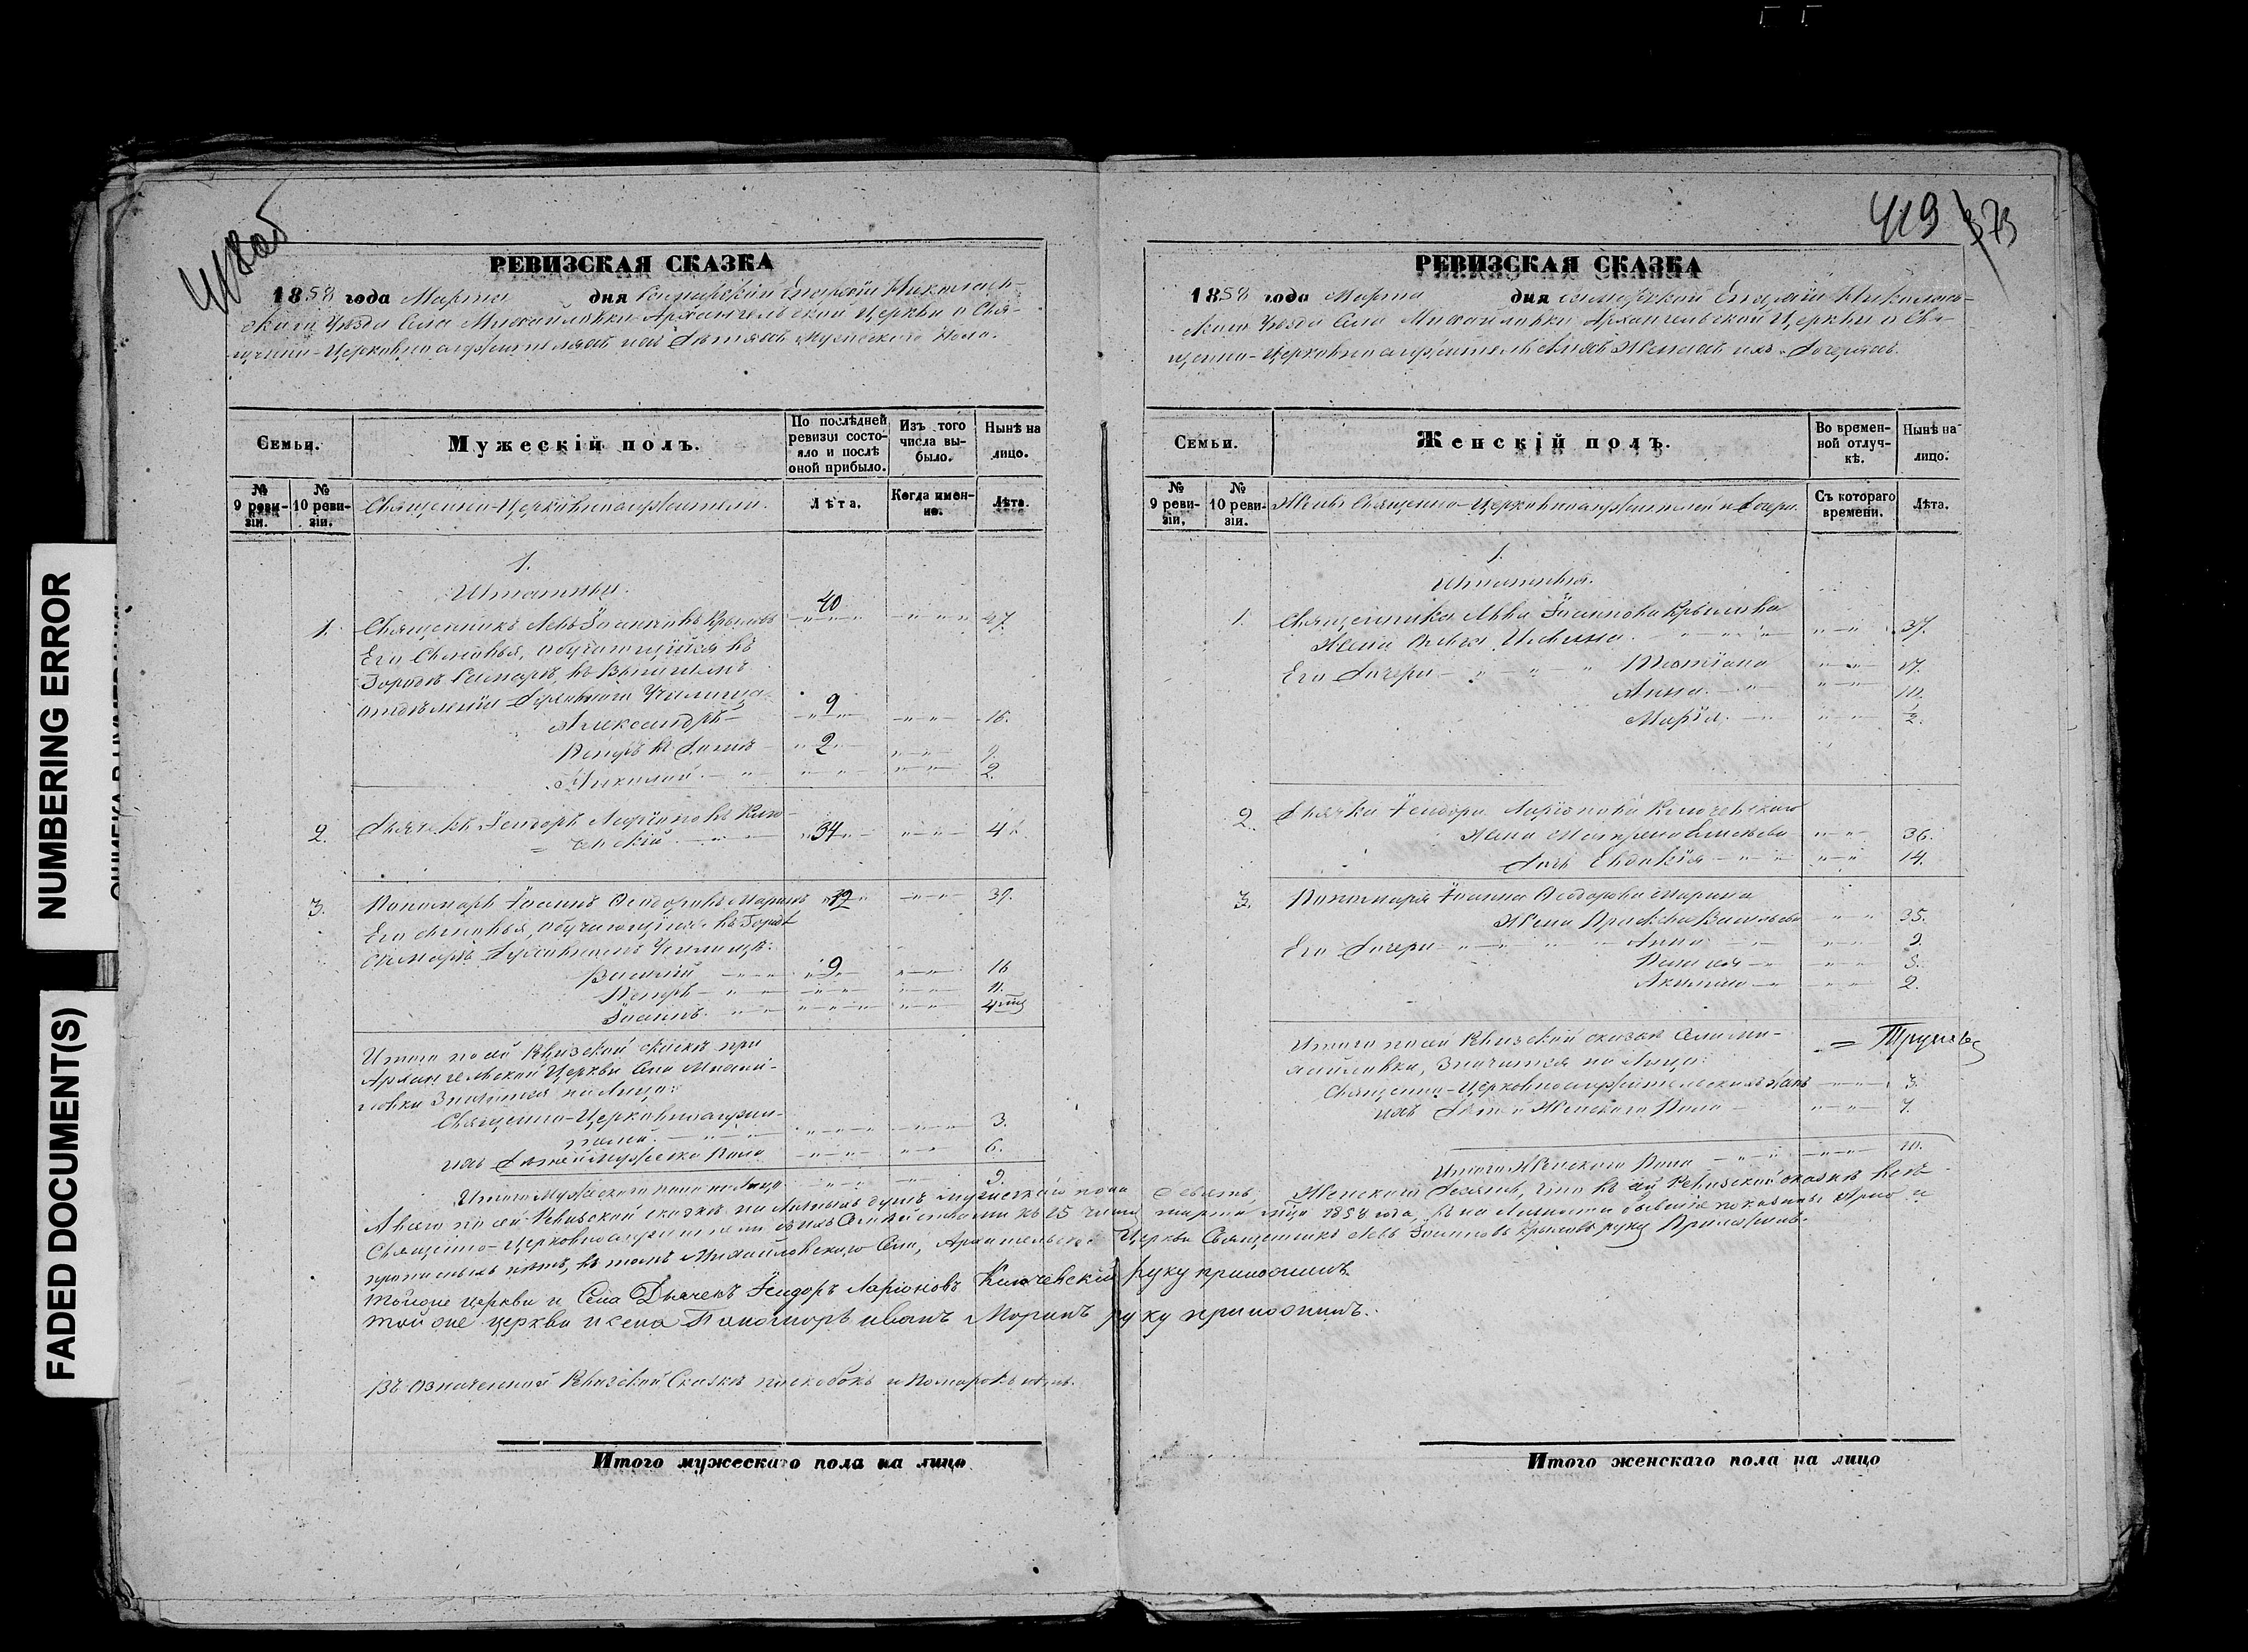 NUMBERING ERROR
FADED DOCUMENT(S)
419 373
РЕВИЗСКАЯ СКАЗКА
1858 года Марта дня Самарской Епархіи Николаев-
скаго Уѣзда Села Михайловки Архангельской Церкви о Свя-
щенно-Церковнослужителяхъ и ихъ Дѣтяхъ Мужескаго Пола.
Семьи.
Мужескій полъ.
По послѣдней ревизіи состо-
яло и послѣ оной прибыло.
Изъ того числа вы-
было.
Нынѣ на лицо.
№ 9 реви-
зіи.
№ 10 реви-
зіи.
Священно-Церковнослужители.
Лѣта.
Когда имен-
но.
Лѣта.
1.
Штатные.
1. Священникъ Левъ Іоанновъ Крыловъ 40 47.
Его Сыновья, обучающійся въ
Городѣ Самарѣ, въ Высшемъ
отдѣленіи Духовнаго Училища
Александръ 9 16.
Петръ въ домѣ 2 9.
Николай 2.
2. Дьячекъ Ѳеодоръ Ларіоновъ Клю-
чевскій 34 41.
3. Пономарь Іоаннъ Ѳеодоровъ Маринъ 39.
Его сыновья, обучающіеся въ Городѣ
Самарѣ Духовномъ Училищѣ:
Василій 9 16
Петръ 11.
Іоаннъ 4
Итого по сей Ревизской сказкѣ при
Архангельской Церкви Села Михай-
ловки Значится на Лицо:
Священно-Церковнослужи-
телей 3.
ихъ Дѣтей Мужеска Пола 6.
Итого Мужескаго пола на Лицо 9.
РЕВИЗСКАЯ СКАЗКА
1858 года Марта дня Самарской Епархіи Николаев-
скаго Уѣзда Села Михайловки Архангельской Церкви о Свя-
щенно-Церковнослужительскихъ Женахъ и ихъ Дочеряхъ.
Семьи.
Женскій полъ.
Во времен-
ной отлуч-
кѣ.
Нынѣ на лицо.
№ 9 реви-
зіи.
№ 10 реви-
зіи.
Жены Священно-Церковнослужителей и дочери.
Съ котораго времени.
Лѣта.
1.
1. Священника Льва Іоаннова Крылова
Жена 37.
Его Дочери Татіана 17.
Анна 10.
Марія ½
2. Дьячка Ѳеодора Ларіонова Ключевскаго
Жена Матрена 36.
Дочь Евдокія 14.
3. Пономаря Іоанна Ѳеодорова Марина
Жена Васильева 35.
Его Дочери Анна 9.
5.
2.
Итого по сей Ревизской сказкѣ Села Ми-
хайловки, Значится на Лицо:
Священно-Церковнослужительскихъ Женъ 3.
ихъ Дѣтей Женскаго Пола 7.
Итого Женскаго Пола 10.
А всего по сей Ревизской сказкѣ наличныхъ душъ мужескаго пола девять, Женскаго Десять, что въ сей Ревизской сказкѣ всѣ
Священно-Церковнослужители съ ихъ Семействами къ 25 числу марта мѣсяца 1858 года, показаны вѣрно и
прописныхъ нѣтъ, въ томъ Михайловскаго Села, Архангельской Церкви Священникъ Левъ Іоанновъ Крыловъ руку Приложилъ.
Той же церкви и Села Дьячекъ Ѳеодоръ Ларіоновъ Ключевскій руку приложилъ.
той же церкви и села Пономоръ иванъ Моринъ руку приложилъ.
Въ означенной Ревизской Сказкѣ поскобокъ и помарокъ нѣтъ.
Итого мужескаго пола на лицо
Итого женскаго пола на лицо